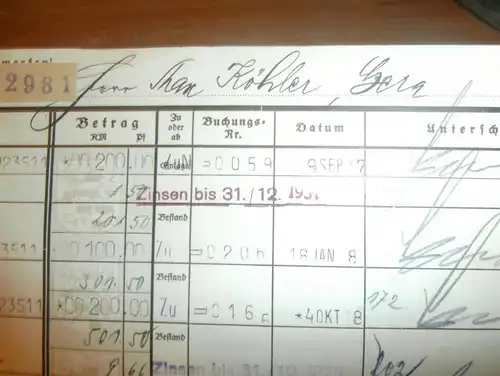 2981 Herr Max Köhler, Gera
Betrag RM Pf Zu oder ab Buchungs-Nr. Datum Untersch
23511 *00.200.00 ZuN =0059 9SEP 7
Einlage
1.50 Zinsen bis 31./12. 193
201.50 Bestand
23511 00.100.00 Zu =0206 18JAN 8
301.50 Bestand
23511 *00.200.00 Zu =016 *4OKT 8 172
501.50 Bestand
Zinsen bis 31.12.